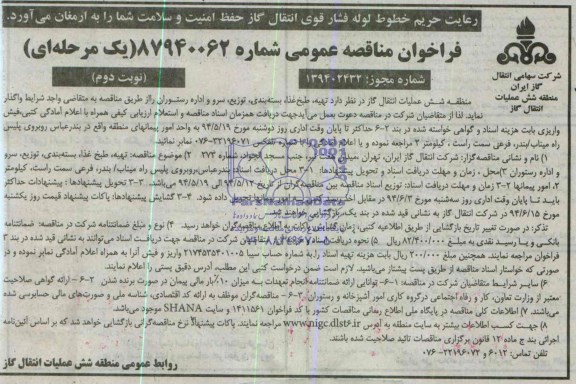 رعایت حریم خطوط لوله فشار قوی انتقال گاز حفظ امنیت و سلامت شما را به ارمغان می‌آورد.
فراخوان مناقصه عمومی شماره ۸۷۹۴۰۰۶۲(یک مرحله‌ای)
شماره مجوز: ۱۳۹۴۰۲۴۳۲
(نوبت دوم)
شرکت سهامی انتقال
گاز ایران
منطقه شش عملیات
انتقال گاز
منطقه شش عملیات انتقال گاز در نظر دارد تهیه، طبخ غذا، بسته‌بندی، توزیع، سرو و اداره رستوران را از طریق مناقصه به متقاضی واجد شرایط واگذار
نماید. لذا از متقاضیان شرکت در مناقصه دعوت بعمل می‌آید جهت دریافت همزمان اسناد مناقصه و استعلام ارزیابی کیفی همراه با اعلام آمادگی کتبی، فیش
واریزی بابت هزینه اسناد و گواهی خواسته شده در بند ۲-۶ حداکثر تا پایان وقت اداری روز دوشنبه مورخ ۹۴/۵/۱۹ به واحد امور پیمانهای منطقه واقع در بندرعباس روبروی پلیس
راه میناب/بندر، فرعی سمت راست، کیلومتر ۲ مراجعه نموده و یا
۱) نام و نشانی مناقصه‌گزار: شرکت انتقال گاز ایران، تهران
و اداره رستوران ۳)محل، زمان و مهلت دریافت اسناد و تحویل پیشنهادها: ۱-۳ محل دریافت اسناد: بندرعباس روبروی پلیس راه میناب/ بندر، فرعی سمت راست، کیلومتر
۲، امور پیمانها ۲-۳ زمان و مهلت دریافت اسناد: توزیع اسناد مناقصه بین مناقصه‌گران از تاریخ ۹۴/۵/۱۲ الی ۹۴/۵/۱۹ می‌باشد. ۳-۳ تحویل پیشنهادها: پیشنهادات حداکثر
باید تا پایان وقت اداری روز سه‌شنبه مورخ ۹۴/۶/۳ در مقابل اخذ رسید تحویل داده شود. ۴-۳ گشایش پیشنهادها: پاکات پیشنهاد قیمت روز یکشنبه
مورخ ۹۴/۶/۱۵ در شرکت انتقال گاز به نشانی قید شده در بند یک، بازگشایی خواهند شد.
تذکر: در صورت تغییر تاریخ بازگشایی از طریق اطلاعیه کتبی، زمان گشایش پاکات به اطلاع مناقصه‌گران خواهد رسید. ۴) نوع و مبلغ ضمانتنامه شرکت در مناقصه: ضمانتنامه
بانکی و یا رسید نقدی به مبلغ ۸۲/۴۰۰/۰۰۰ ریال ۵) نحوه دریافت اسناد مناقصه: متقاضیان شرکت در مناقصه جهت دریافت اسناد می‌توانند به نشانی قید شده در بند ۳
فراخوان مراجعه نمایند. همچنین مبلغ ۲۰۰/۰۰۰ ریال بابت هزینه تهیه اسناد را به شماره حساب سیبا ۲۱۷۴۵۲۵۳۰۱۰۰۵ واریز و فیش آنرا به همراه اعلام آمادگی نمایر نموده و در
صورتی که خواستار اسناد مناقصه از طریق پست پیشتاز می‌باشید. لازم است ضمن درخواست کتبی این مطلب، آدرس دقیق پستی را اعلام نمایند.
۶) سایر شرایط متقاضیان شرکت در مناقصه: ۱-۶- توانایی ارائه ضمانتنامه انجام تعهدات به میزان ۱۰٪ بار مالی پیمان در صورت برنده شدن ۲-۶- ارائه گواهی صلاحیت
معتبر از وزارت تعاون، کار و رفاه اجتماعی در گروه کاری امور آشپزخانه و رستوران ۳-۶- مناقصه‌گران موظف به ارائه کد اقتصادی، شناسه ملی و صورت‌های مالی حسابرسی شده
می‌باشند. ۷) اطلاعات کلی مناقصه در پایگاه ملی اطلاع رسانی مناقصات کشور با کد فراخوان ۱۴۱۱۵۶۱ و سایت SHANA موجود می‌باشد.
۸) جهت کسب اطلاعات بیشتر به سایت منطقه به آدرس www.nigc.dlst6.ir مراجعه نمایند. پاکات پیشنهاد نرخ مناقصه‌گرانی بازگشایی خواهد شد که بر اساس آئین‌نامه
اجرائی بند ج ماده ۱۲ قانون برگزاری مناقصات تائید صلاحیت شده باشند.
تلفن تماس: ۶۰۱۲ و ۳۲۱۹۶۰۷۲-۰۷۶
روابط عمومی منطقه شش عملیات انتقال گاز